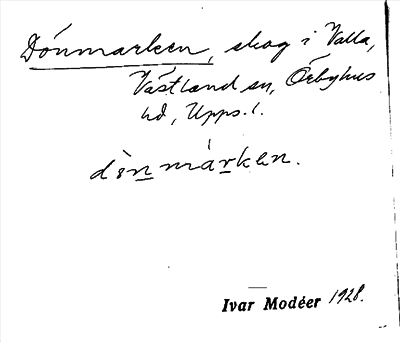 Dönmarken, skog i Valla,
Västland sn, Örbyhus
hd, Upps. l.
dönmárken.
Ivar Modéer 1928.